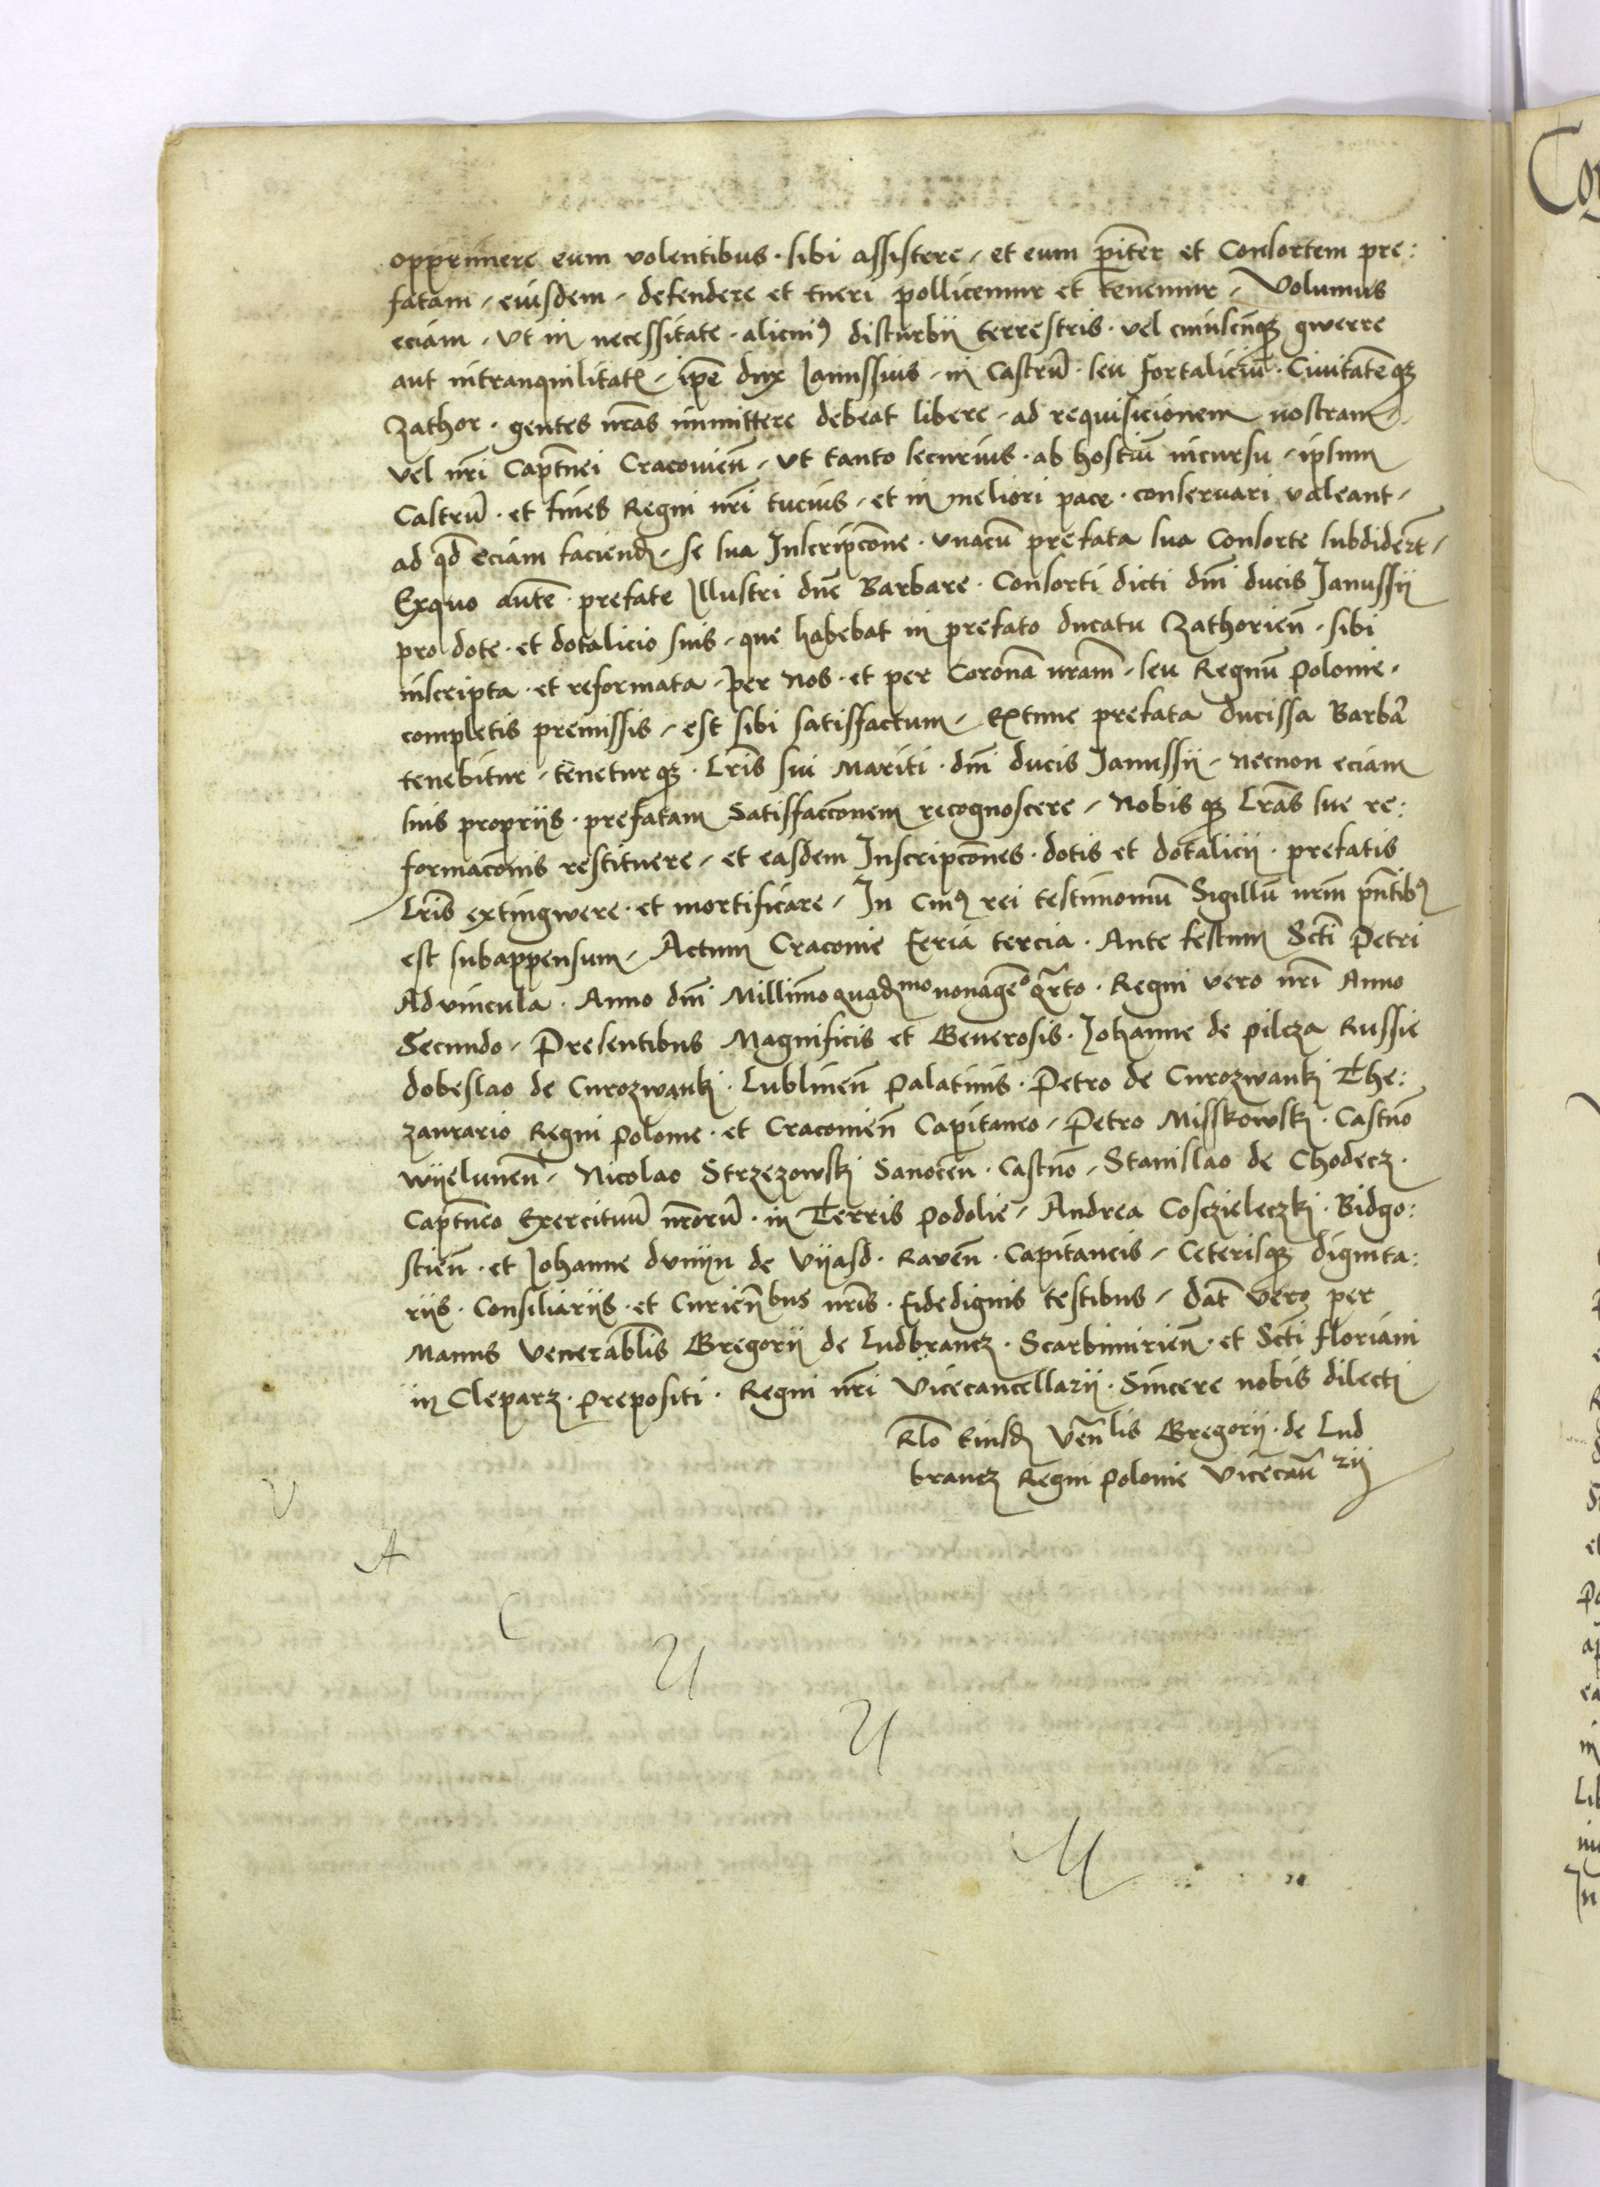 opprimere eum volentibus · sibi assistere / et eum pariter et Consortem pre:
fatam / eiusdem / defendere et tueri pollicemur et tenemur / Volumus
eciam / Vt in necessitate · alicui9 disturbii terrestris · vel cuiuscūqꝫ gwerre
aut intranquilitatꝭ / ip̄e dux Janussius / in Castrū · seu fortaliciū · Ciuitatēqꝫ
Zathor · gentes nr̄as inmittere debeat libere / ad requisicionem nostram /
vel nr̄i Capt̄nei Cracouien̄ / Vt tanto securius · ab hostiū incursu / ipsum
Castrū · et fines Regni nr̄i tucius / et in meliori pace · conseruari valeant /
ad qd̄ eciam faciend̄ / se sua Inscripcōne · vnacū prefata sua Consorte subdider̄t /
Exquo autē prefate Illustri dn̄e Barbare · Consorti dicti dn̄i ducis Janussii
pro dote · et dotalicio suis / que habebat in prefato ducatu Zathorien̄ · sibi
inscripta · et reformata / per Nos · et per Coronā nr̄am / seu Regnū Polonie ·
completis premissis / est sibi satisfactum / Extunc prefata ducissa Barbā
tenebitur / teneturqꝫ · Lr̄is sui Mariti · dn̄i ducis Janussii / Necnon eciam
suis propriis · prefatam Satisfaccōnem recognoscere / Nobis qꝫ Lr̄as sue re:
formacōnis restituere / et easdem Inscripcōnes · dotis et dotalicii · prefatis
Lr̄is extingwere · et mortificare / In Cui9 rei testimoniū Sigillū nr̄m pn̄tib9
est subappensum / Actum Cracouie feria tercia · Ante festum Scti Petri
Advincula · Anno dn̄i Millimo quadmo nonagēo qrto · Regni vero nr̄i Anno
Secundo / Presentibus Magnificis et Generosis · Johanne de pilcza Russie
dobeslao de Curozwanki · Lublinen̄ Palatinis · Petro de Curozwanki The:
zaurario Regni Polonie · et Cracouien̄ Capitaneo / Petro Misskowski · Castn̄o
wyelunen̄ / Nicolao Strzezowski Sanocen̄ · Castn̄o / Stanislao de Chodecz ·
Capt̄neo Exercituū nr̄orū · in Terris Podolie / Andrea Cosczieleczki · Bidgo:
stien̄ · et Johanne dunyn de Vyasd · Raven̄ · Capitaneis / Ceterisqꝫ dignita:
riis · Consiliariis · et Curien̄bus nr̄is · fidedignis testibus / dat̄ vero per
Manus Venerablis Gregorii de Ludbrancz · Scarbimirien̄ · et Scti floriani
in Cleparz · Prepositi · Regni nr̄i Vicecancellarii · Sincere nobis dilecti
Rlo Eiusd̄ Ven̄lis Gregorii · de Lud
brancz Regni Polonie Vicecan̄rii
V
A
C
U
U
M